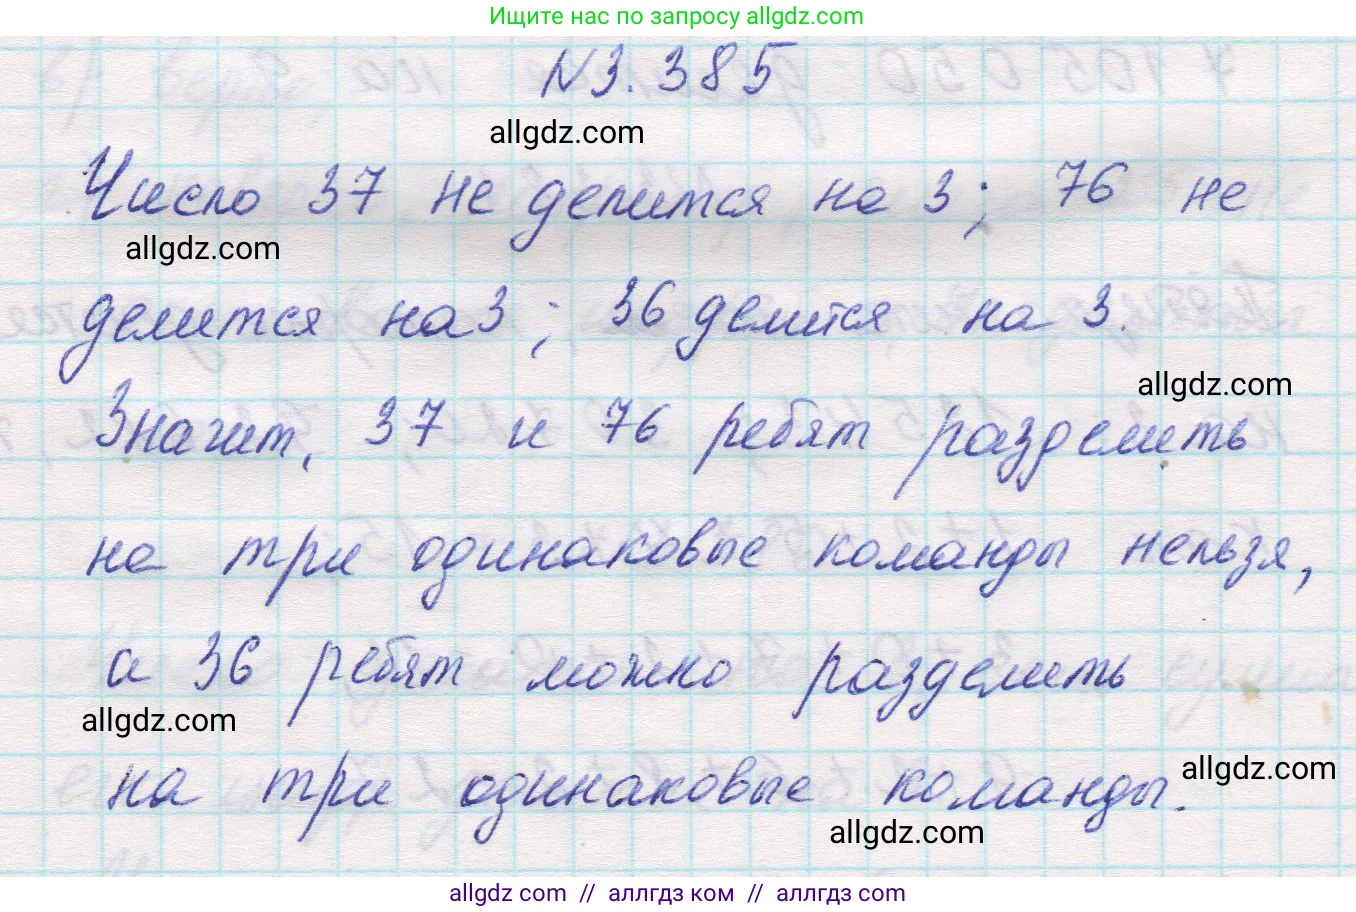 Ищите нас по запросу allgdz.com
№3.385
allgdz.com
Число 37 не делится на 3; 76 не
allgdz.com
делится на 3; 36 делится на 3.
allgdz.com
Значит, 37 и 76 ребят разделить
на три одинаковые команды нельзя,
а 36 ребят можно разделить
allgdz.com
на три одинаковые команды.
allgdz.com
allgdz.com
allgdz.com // аллгдз ком // аллгдз.com